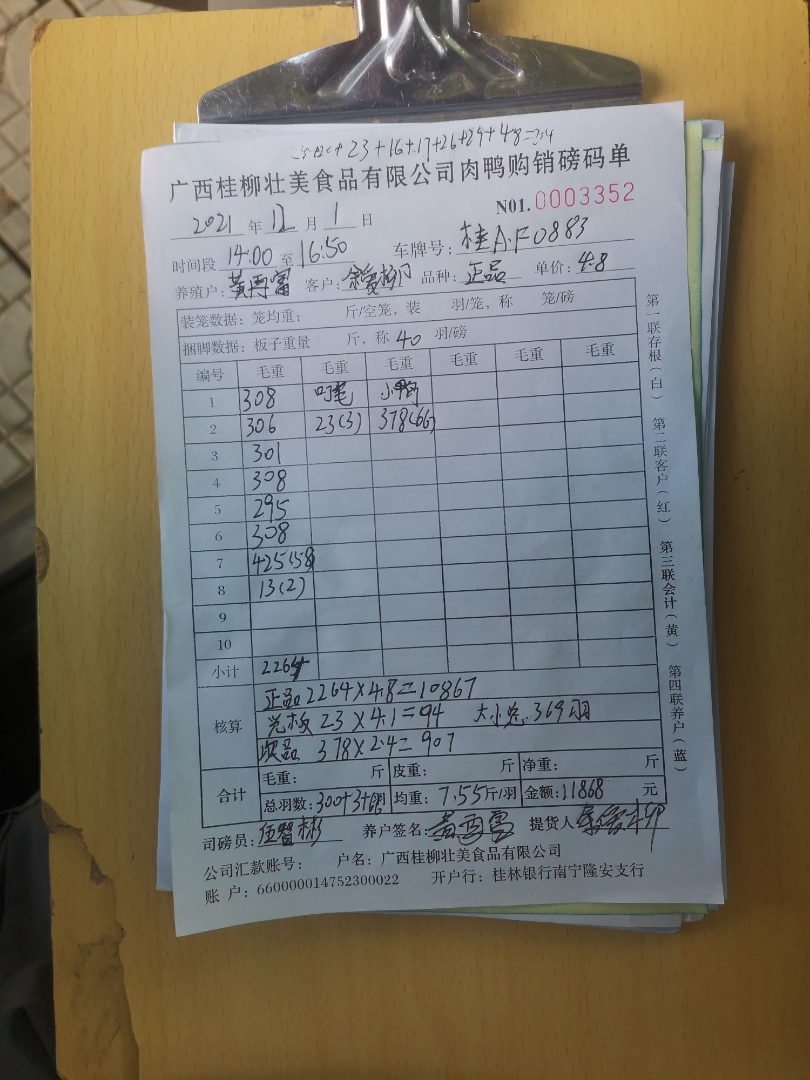 23+16+17+26+29+48=
广西桂柳壮美食品有限公司肉鸭购销磅码单
2021 年 12 月 1 日 N01.0003352
时间段 14:00 至 16:50 车牌号: 桂A·F0883
养殖户: 黄再富 客户: 品种: 正品 单价: 4.8
装笼数据: 笼均重: 斤/空笼, 装 羽/笼, 称 笼/磅
捆脚数据: 板子重量 斤, 称 40 羽/磅
编号 毛重 毛重 毛重 毛重 毛重 毛重
1 308 叮毛 小鸭
2 306 23(3) 378(66)
3 301
4 308
5 295
6 308
7 425(58)
8 13(2)
9
10
小计 2264
核算 正品 2264×4.8=10867
23×4.1=94 大小 369羽
次品 378×2.4=907
合计 毛重: 斤 皮重: 斤 净重: 斤
总羽数: 300+3+66 均重: 7.55斤/羽 金额: 11868 元
司磅员: 伍智彬 养户签名: 黄再富 提货人
公司汇款账号: 户名: 广西桂柳壮美食品有限公司
账 户: 660000014752300022 开户行: 桂林银行南宁隆安支行
第一联存根(白) 第二联客户(红) 第三联会计(黄) 第四联养户(蓝)